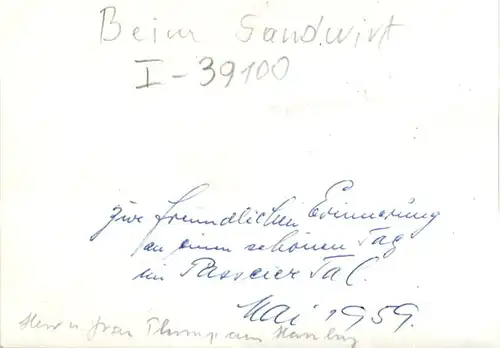 Beim Sandwirt
I-39100
zur freundlichen Erinnerung
an einen schönen Tag
im Passeier Tal.
Mai 1959.
Herr u Frau aus Hamburg